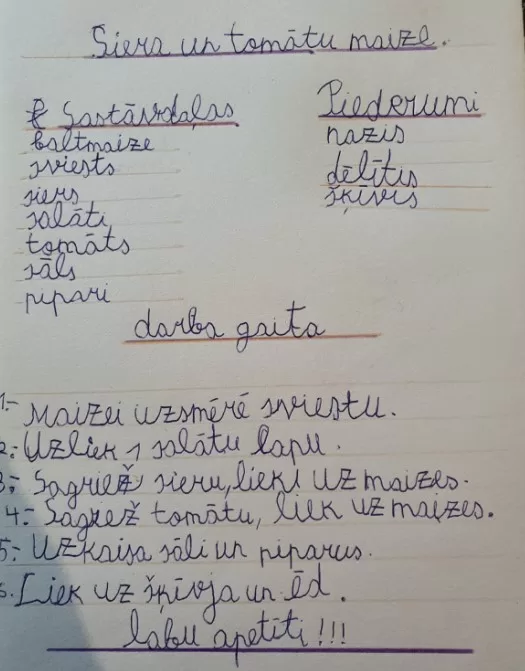 Siera un tomātu maize.
Sastāvdaļas
baltmaize
sviests
siers
salāti
tomāts
sāls
pipari
Piederumi
nazis
dēlītis
šķīvis
darba gaita
1.- Maizei uzsmērē sviestu.
2.- Uzliek 1 salātu lapu.
3.- Sagriež sieru, liek uz maizes.
4.- Sagrež tomātu, liek uz maizes.
5.- Uzkaisa sāli un piparus.
6. Liek uz šķīvja un ēd.
labu apetīti!!!